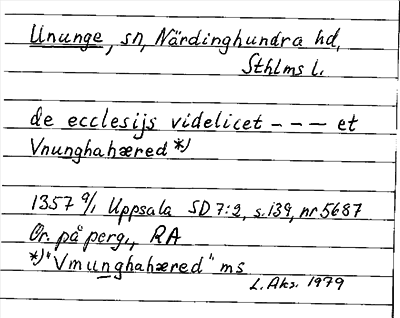 Ununge, sn, Närdinghundra hd,
Sthlms l.
de ecclesijs videlicet - - - et
Vnunghahæred *)
1357 9/1 Uppsala SD 7:2, s. 139, nr 5687
Or. på perg., RA
*) "Vmunghahæred" ms
L. Aks. 1979